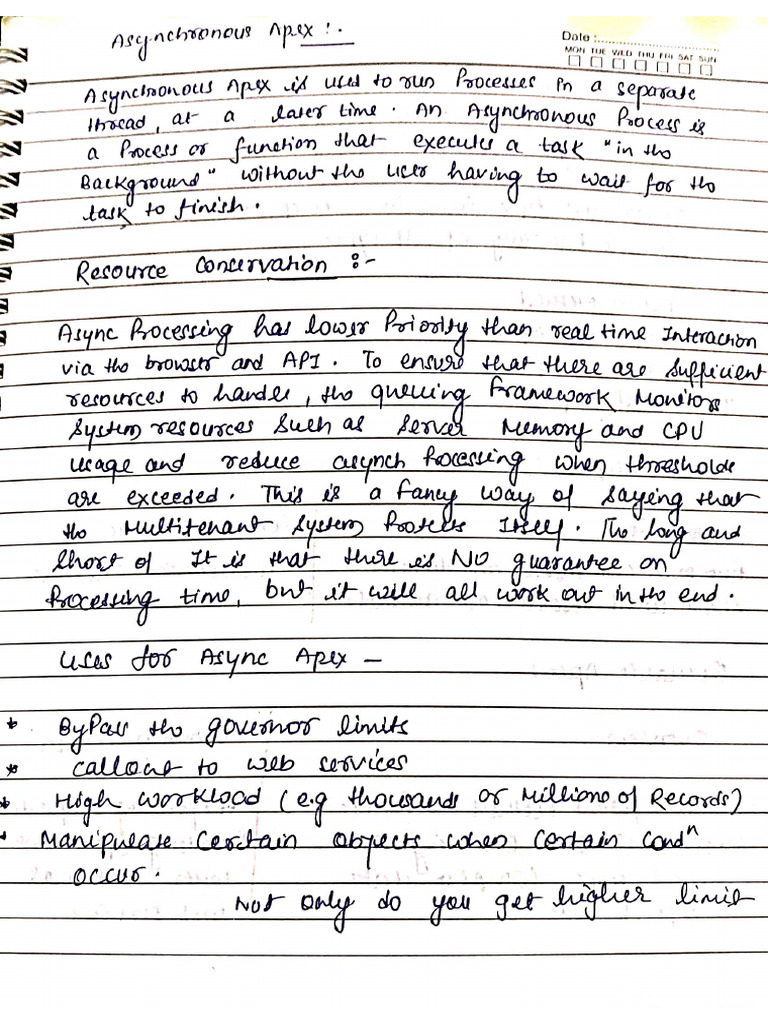 Asynchronous Apex :-
Date :
MON TUE WED THU FRI SAT SUN
Asynchronous Apex is used to run Processes in a separate
thread, at a later time. An Asynchronous Process is
a Process or function that executes a task "in the
Background" without the user having to wait for the
task to finish.
Resource Conservation :-
Async Processing has lower Priority than real time Interaction
via the browser and API. To ensure that there are sufficient
resources to handle, the queuing framework Monitors
System resources Such as Server Memory and CPU
usage and reduce asynch Processing when thresholds
are exceeded. This is a fancy way of saying that
the Multitenant System Protects Itself. The long and
Short of It is that there is NO guarantee on
Processing time, but it will all work out in the end.
Uses for Async Apex -
* ByPass the governor limits
* callout to web services
* High workload (e.g thousands or Millions of Records)
* Manipulate Certain Objects when Certain Condⁿ
occur.
Not only do you get higher limit